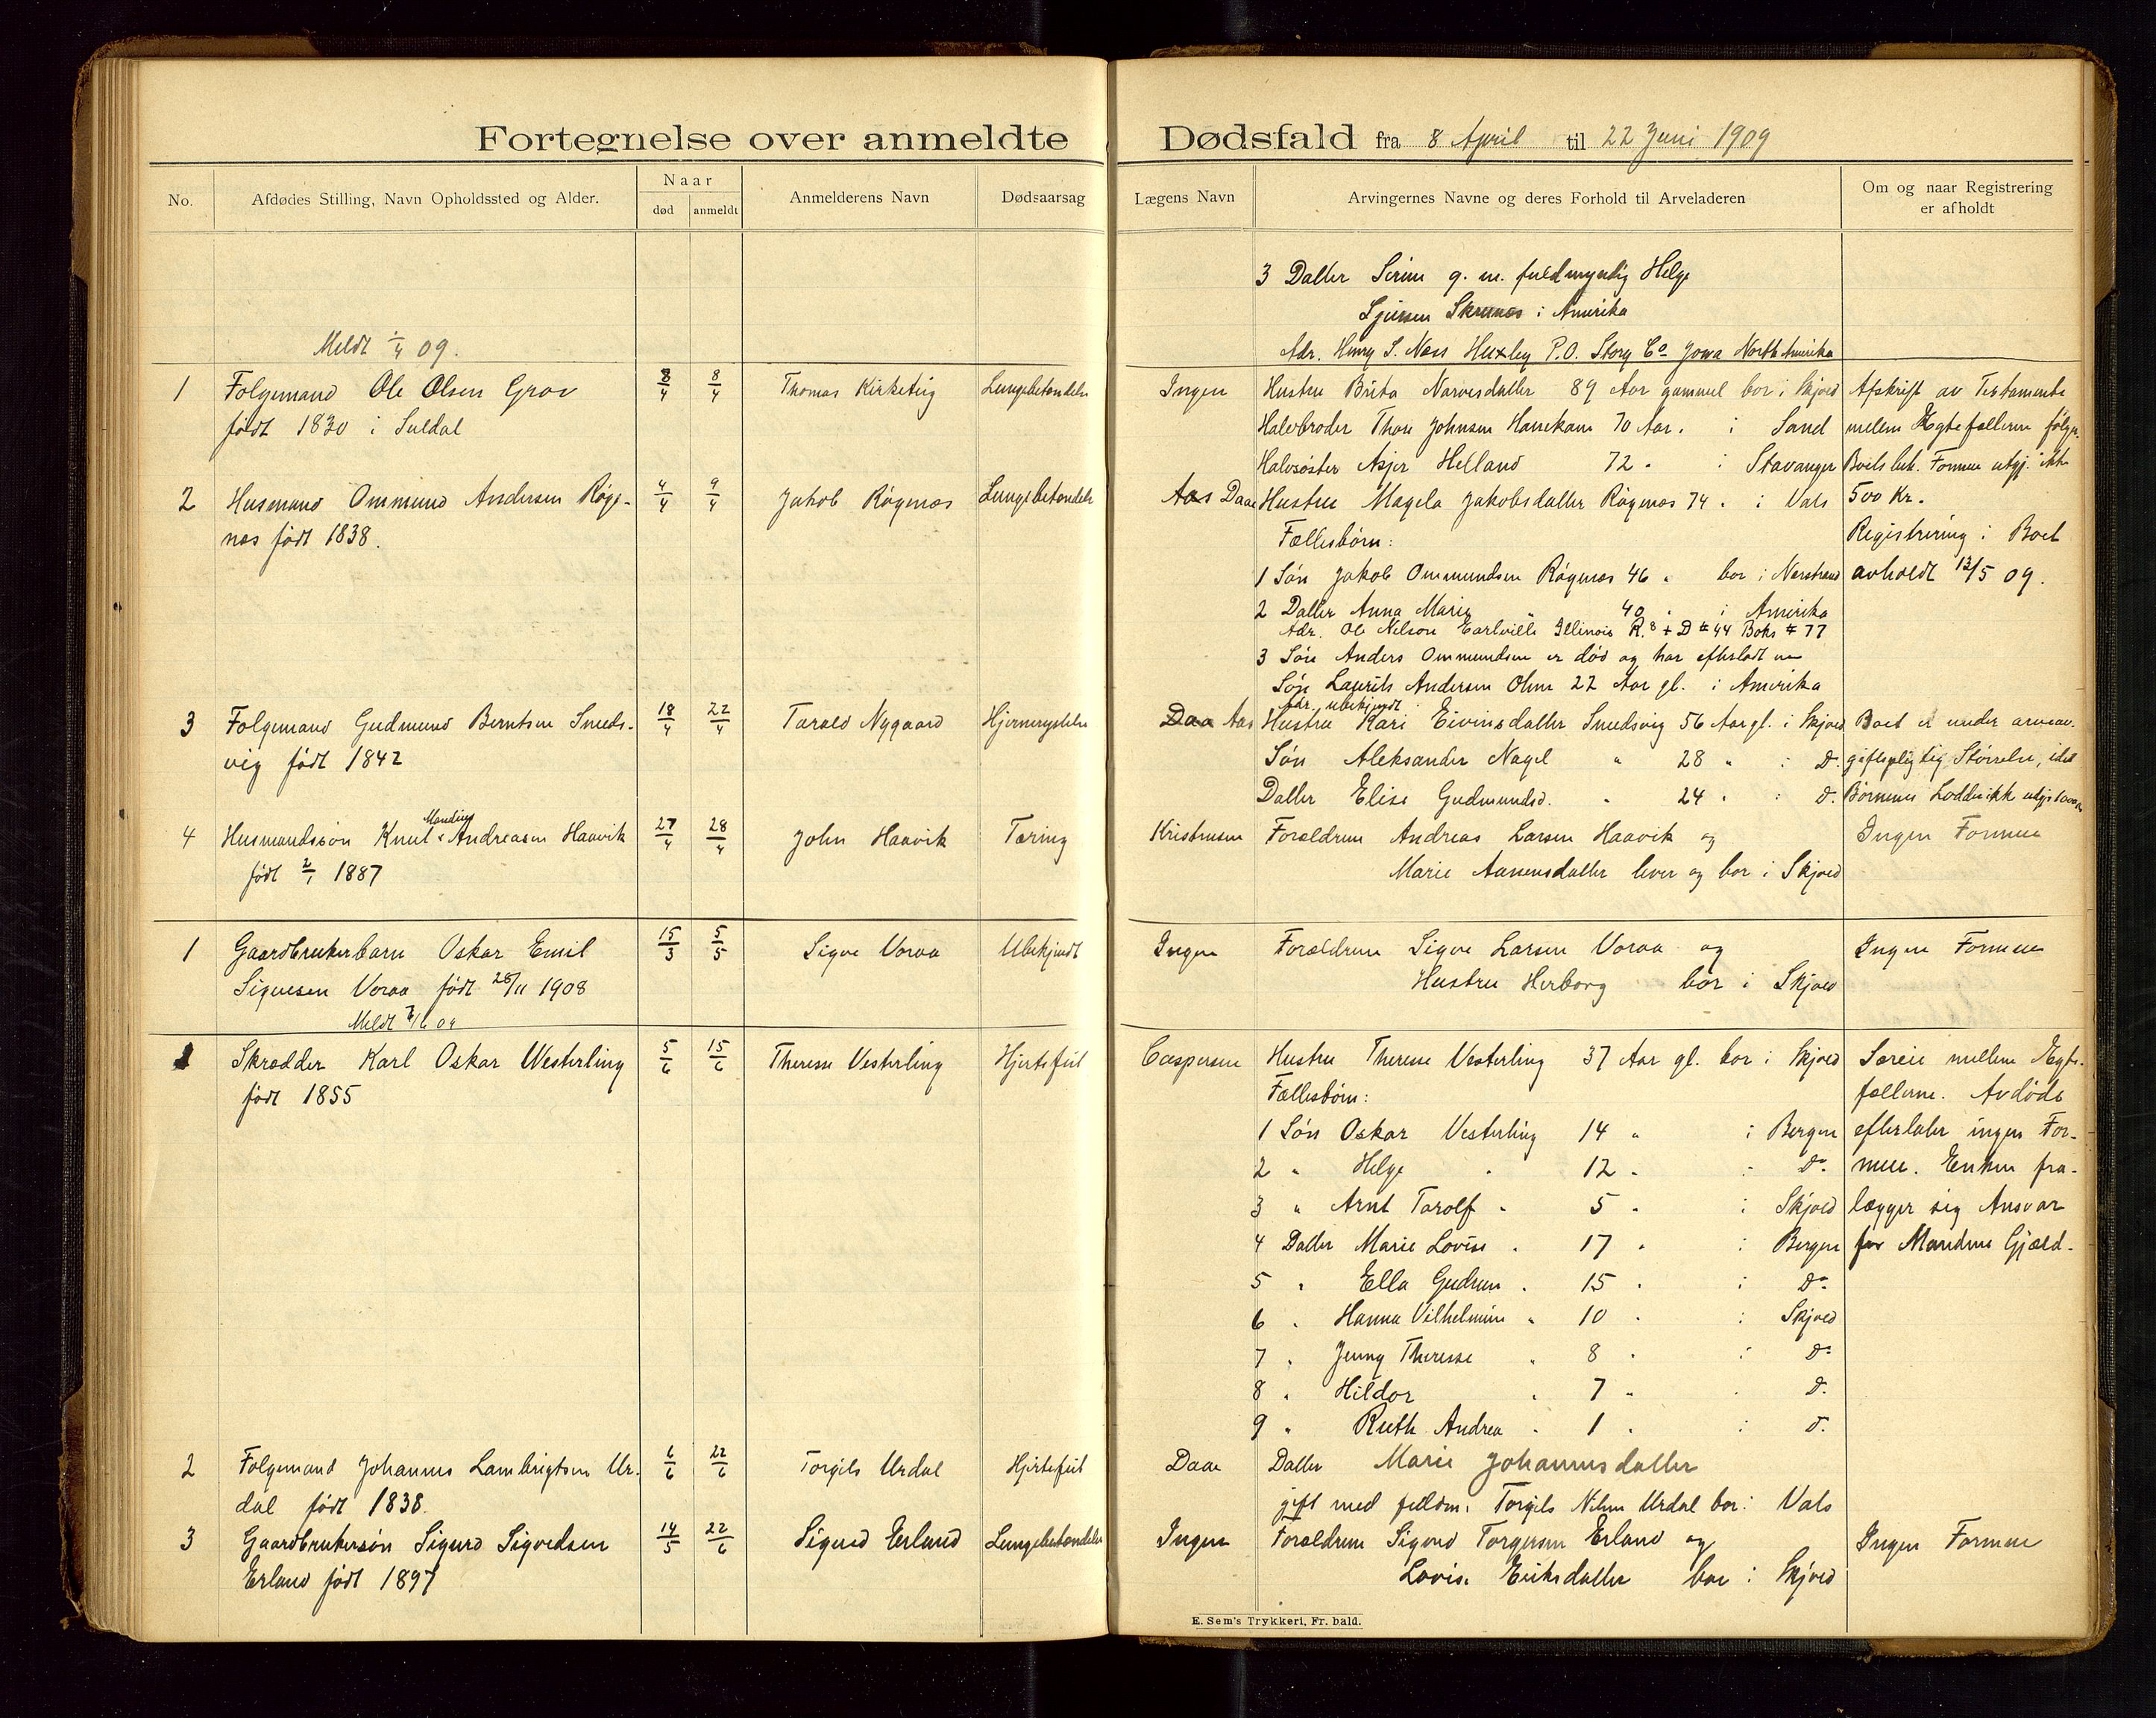 Fortegnelse over anmeldte Dødsfald fra 8 April til 22 Juni 1909
No. Afdødes Stilling, Navn Opholdssted og Alder. Naar død anmeldt Anmelderens Navn Dødsaarsag Lægens Navn Arvingernes Navne og deres Forhold til Arveladeren Om og naar Registrering er afholdt
3 Datter Serine g. m. fuldmyndig Helge
Skeunes i Amerika
Adr. Henry S. Ness Huxley P.O. Story Co Jowa North Amerika
Meldt 1/4 09.
1 Folgemand Ole Olsen Grov 8/4 8/4 Thomas Kirketeig Lungebetændelse Ingen Hustru Brita Narvesdatter 89 Aar gammel bor i Skjold Afskrift av Testamente
født 1830 i Suldal Halvbroder Thore Johnsen 70 Aar. i Sand mellem Ægtefællerne følger.
Halvsøster Asjer Helland 72 " i Stavanger Boets beh. Formue utgj. ikke
2 Husmand Ommund Andersen Røgs- 4/4 9/4 Jakob Røgnæs Lungebetændelse Aas Daae Hustru Magela Jakobsdatter Røgnæs 74 " i Vats 500 Kr.
næs født 1838. Fællesbørn: Registrering i Boet
1 Søn Jakob Ommundsen Røgnæs 46 " bor i Nerstrand avholdt 12/5 09.
2 Datter Anna Marie " 40 " i Amerika
Adr. Ole Nelson Earlville Illinois R. 8 + D # 44 Boks # 77
3 Søn Anders Ommundsen er død og har efterladt en
Søn Laurits Andersen Ohm 22 Aar gl. i Amerika
Adr. ubekjendt
3 Folgemand Gudmund Berntsen Smeds- 18/4 22/4 Tarald Nygaard Hjernerystelse Daa Aas Hustru Kari Eivinsdatter Smedsvig 56 Aar gl. i Skjold Boet er under arveav-
vig født 1842 Søn Aleksander Nagel " 28 " i Do. giftspligtig Størrelse, idet
Datter Elise Gudmundsd. " 24 " i Do. Børnenes Lodder ikke utgjr 1000 Kr
4 Husmandssøn Knut Mandius Andreasen Haavik 27/4 28/4 John Haavik Tæring Kristensen Forældrene Andreas Larsen Haavik og Ingen Formue
født 2/1 1887 Marie Aanensdatter lever og bor i Skjold
1 Gaardbrukerbarn Oskar Emil 15/3 5/5 Sigve Voraa Ubekjendt Ingen Forældrene Sigve Larsen Voraa og Ingen Formue
Sigvesen Voraa født 28/11 1908 Hustru Herborg bor i Skjold
Meldt 7/6 09
1 Skrædder Karl Oskar Westerling 5/6 15/6 Therese Vesterling Hjertefeil Caspersen Hustru Therese Vesterling 37 Aar gl. bor i Skjold Særeie mellem Ægte-
født 1855 Fællesbørn: fællerne. Avdøde
1 Søn Oskar Vesterling 14 " i Bergen efterlater ingen For-
2 " Helge " 12 " " Do. mue. Enken fra-
3 " Arnt Tarolf " 5 " i Skjold lægger sig Ansvar
4 Datter Marie Lovise " 17 " i Bergen for Mandens Gjæld.
5 " Ella Gudrun " 15 " i Do.
6 " Hanna Vilhelmine " 10 " i Skjold
7 " Jenny Therese " 8 " i Do.
8 " Hildor " 7 " " Do.
9 " Ruth Andrea " 1 " i Do.
2 Folgemand Johannes Lambrigtsen Ur- 6/6 22/6 Torgils Urdal Hjertefeil Daae Datter Marie Johannesdatter
dal født 1838. gift med fuldm. Torgils Nilsen Urdal bor i Vats
3 Gaardbrukersøn Sigurd Sigvedsen 14/5 22/6 Sigved Erland Lungebetændelse Ingen Forældrene Sigved Torgersen Erland og Ingen Formue
Erland født 1897 Lovise Eriksdatter bor i Skjold
E. Sem's Trykkeri, Fr. hald.